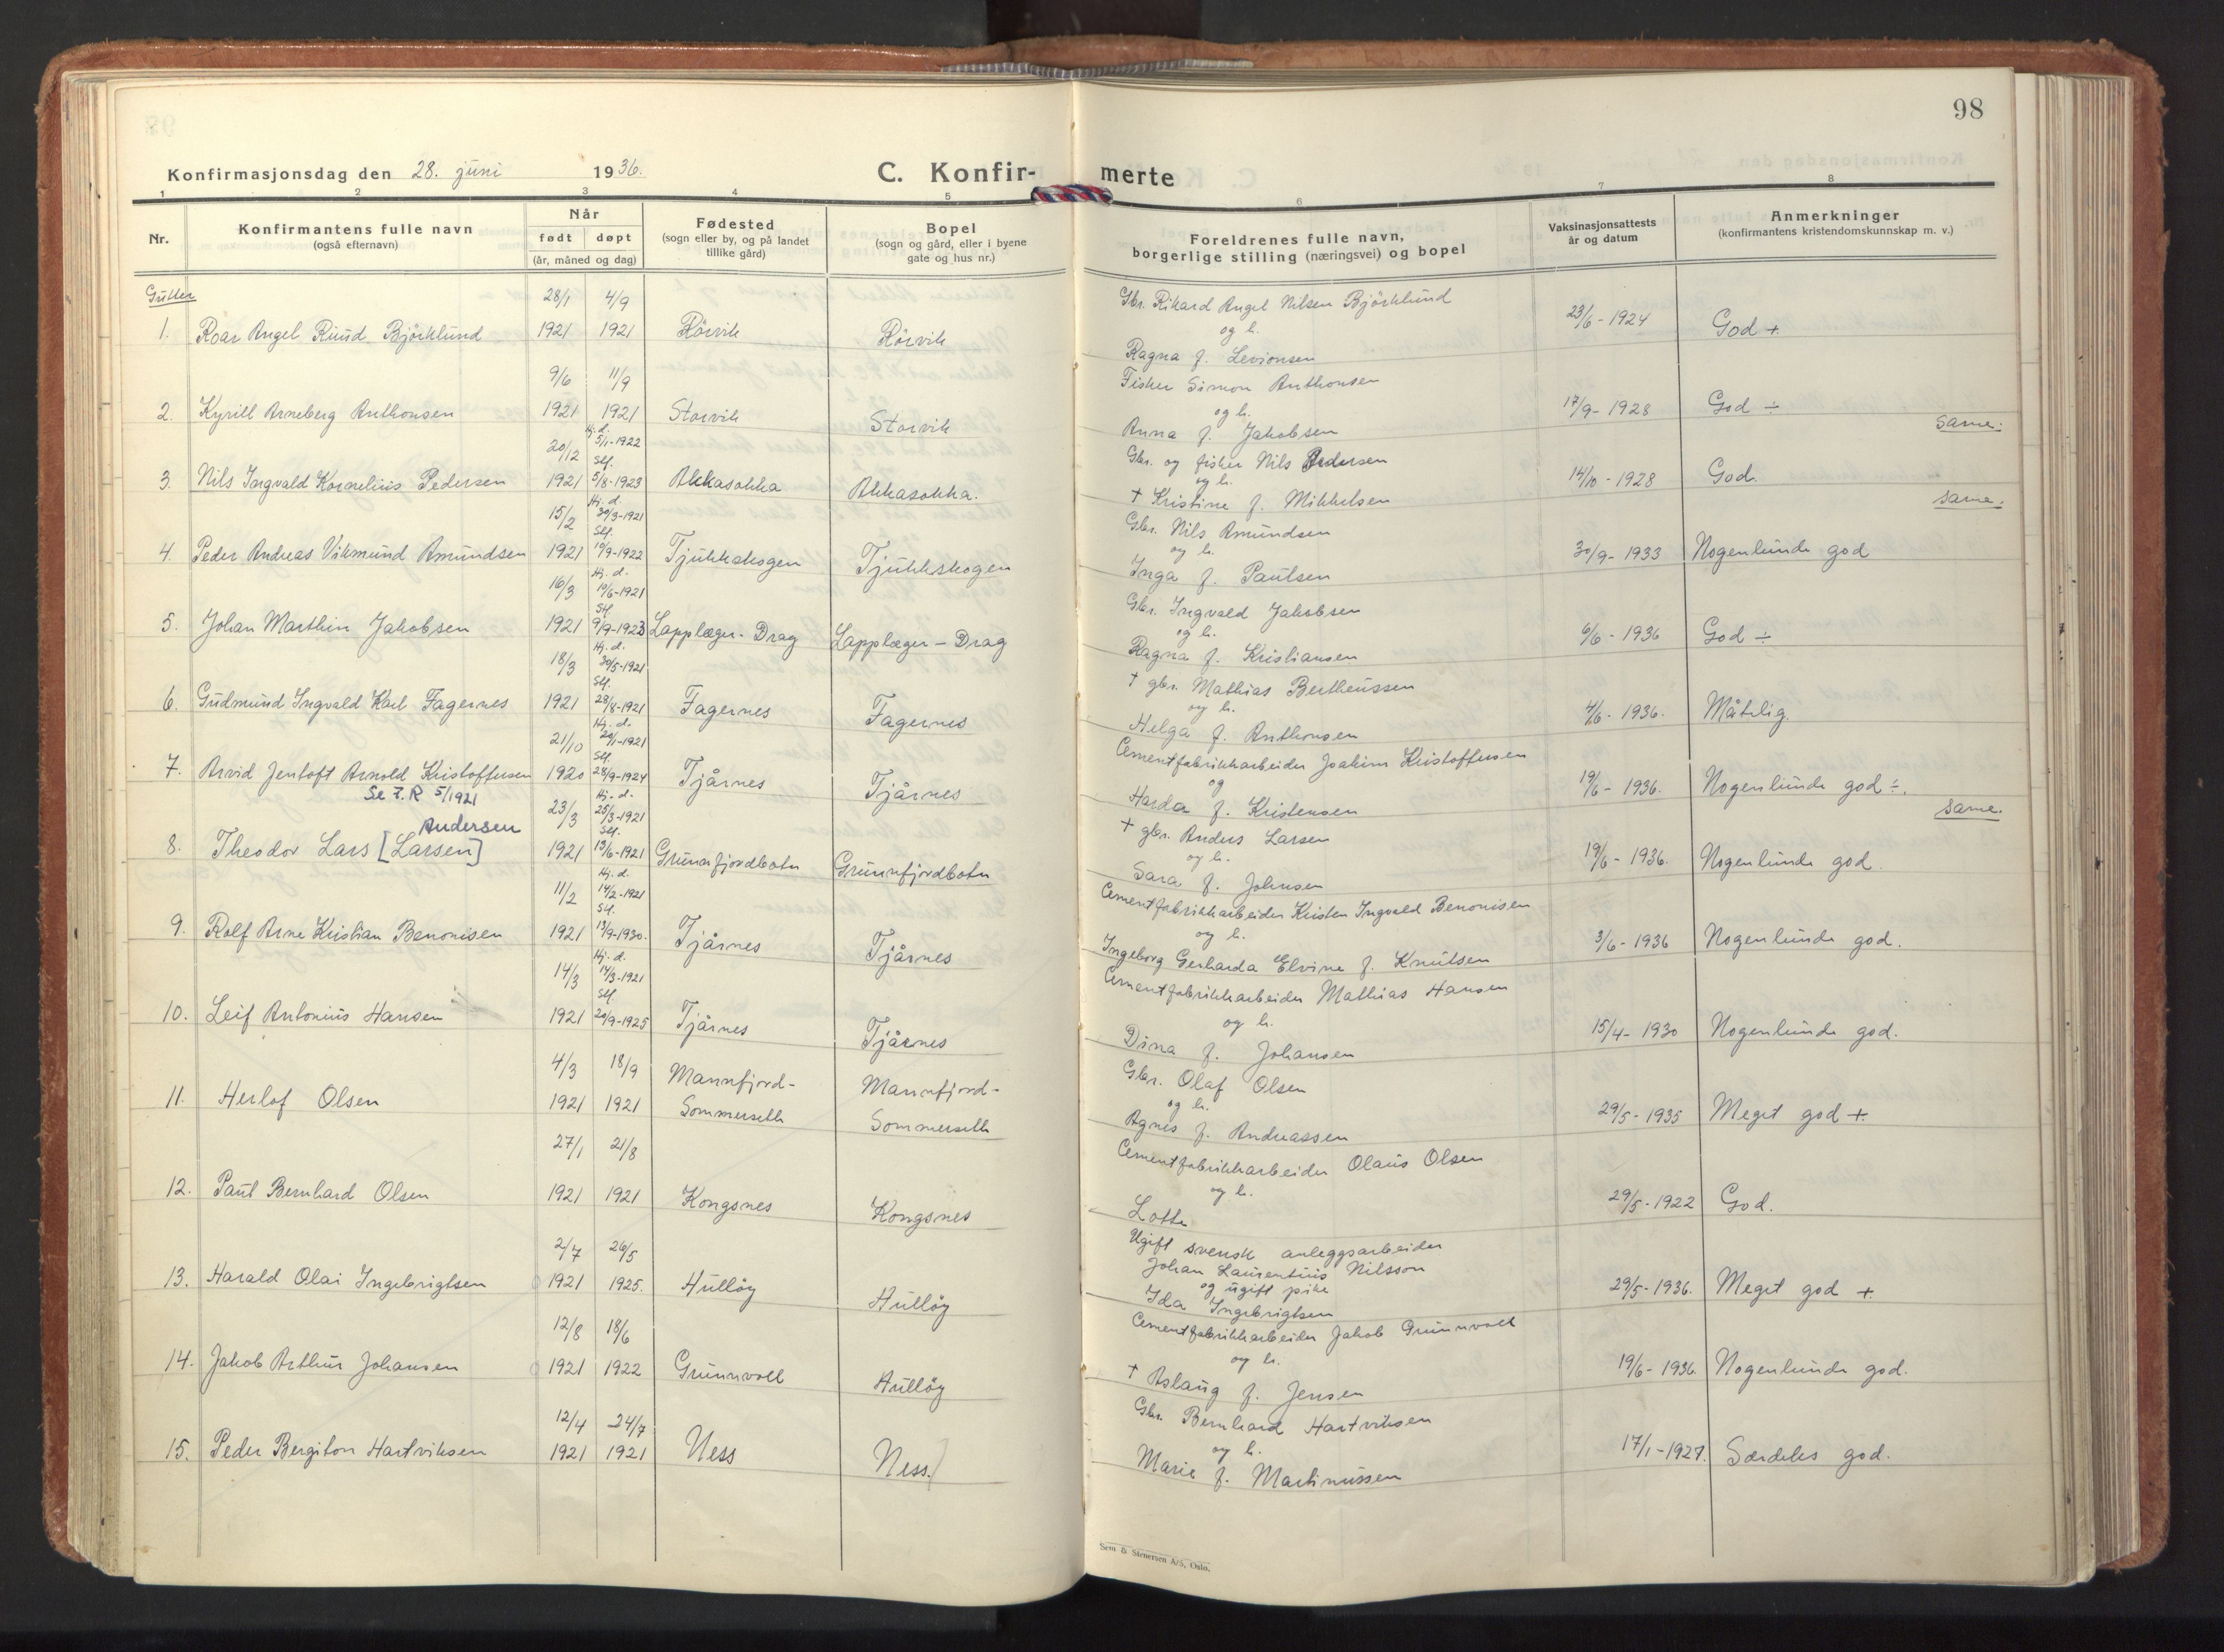 98
Konfirmasjonsdag den 28. juni 1936.
C. Konfir-
merte
1 2 3 4 5 6 7 8
Nr.
Konfirmantens fulle navn
(også efternavn)
Når
født døpt
(år, måned og dag)
Fødested
(sogn eller by, og på landet
tillike gård)
Bopel
(sogn og gård, eller i byene
gate og hus nr.)
Foreldrenes fulle navn,
borgerlige stilling (næringsvei) og bopel
Vaksinasjonsattests
år og datum
Anmerkninger
(konfirmantens kristendomskunnskap m. v.)
Gutter
28/1 4/9
Gbr. Rikard Angel Nilsen Björklund
1. Roar Angel Ruud Björklund 1921 1921 Rörvik Rörvik
og h.
23/6-1924 God +.
Ragna f. Levionsen
9/6 11/9
Fisker Simon Anthonsen
2. Kyrill Arneberg Anthonsen 1921 1921 Storvik Storvik
og h.
17/9-1928 God ÷
Anna f. Jakobsen
same.
20/12 Hj. d. 5/1-1922
Gbr. og fisker Nils Pedersen
3. Nils Ingvald Kornelius Pedersen 1921 Stf. 5/8-1923 Akkasokka Akkasokka.
og h.
14/10-1928 God.
+ Kristine f. Mikkelsen
same.
15/2 Hj. d. 30/3-1921
Gbr. Nils Amundsen
4. Peder Andreas Vikmund Amundsen 1921 Stf. 10/9-1922 Tjukkskogen Tjukkskogen
og h.
30/9-1933 Nogenlunde god
Inga f. Paulsen
16/3 Hj. d. 19/6-1921
Gbr. Ingvald Jakobsen
5. Johan Marthin Jakobsen 1921 Stf. 9/9-1923 Lapplæger-Drag Lapplæger-Drag
og h.
6/6-1936 God ÷
Ragna f. Kristiansen
18/3 Hj. d. 30/5-1921
+ gbr. Mathias Bertheussen
6. Gudmund Ingvald Karl Fagernes 1921 Stf. 28/8-1921 Fagernes Fagernes
og h.
4/6-1936. Måtelig.
Helga f. Anthonsen
21/10 Hj. d. 20/1-1921
Cementfabrikkarbeider Joakim Kristoffersen
7. Arvid Jentoft Arnold Kristoffersen 1920 Stf. 28/9-1924 Tjårnes Tjårnes
og
19/6-1936. Nogenlunde god ÷.
Harda f. Kristensen
same.
Se F. R 5/1921
23/3 Hj. d. 25/3-1921
Andersen
+ gbr. Anders Larsen
8. Theodor Lars [Larsen] 1921 Stf. 13/6-1921 Grunnfjordbotn Grunnfjordbotn
og h.
19/6-1936. Nogenlunde god.
Sara f. Johnsen
11/2 Hj. d. 14/2-1921
Cementfabrikkarbeider Kristen Ingvald Benonisen
9. Rolf Arne Kristian Benonisen 1921 Stf. 13/9-1930. Tjårnes Tjårnes
og h.
3/6-1936 Nogenlunde god.
Ingeborg Gerharda Elvine f. Knutsen
14/3 Hj. d. 14/3-1921
Cementfabrikkarbeider Mathias Hansen
10. Leif Antonius Hansen 1921 Stf. 20/9-1925 Tjårnes Tjårnes
og h.
15/4-1930 Nogenlunde god.
Dina f. Johansen
4/3 18/9 Mannfjord- Mannfjord-
Gbr. Olaf Olsen
11. Herlof Olsen 1921 1921 Sommerseth Sommerseth
og h.
29/5-1935 Meget god +.
Agnes f. Andreassen
27/1 21/8
Cementfabrikkarbeider Olaus Olsen
12. Paul Bernhard Olsen 1921 1921 Kongsnes Kongsnes
og h.
29/5-1922 God.
Lotte
2/7 26/5
Ugift svensk anleggsarbeider
Johan Laurentius Nilsson
13. Harald Olai Ingebrigtsen 1921 1925. Hulløy Hulløy
og ugift pike
29/5-1936. Meget god +.
Ida Ingebrigtsen
12/8 18/6
Cementfabrikkarbeider Jakob Grunnvoll
14. Jakob Arthur Johansen 1921 1922 Grunnvoll Hulløy
og h.
19/6-1936. Nogenlunde god.
+ Aslaug f. Jensen
12/4 24/7
Gbr. Bernhard Hartviksen
15. Peder Bergiton Hartviksen 1921 1921 Ness Ness.
og h.
17/1-1927. Særdeles god.
Marie f. Martinussen
Sem & Stenersen A/S, Oslo.